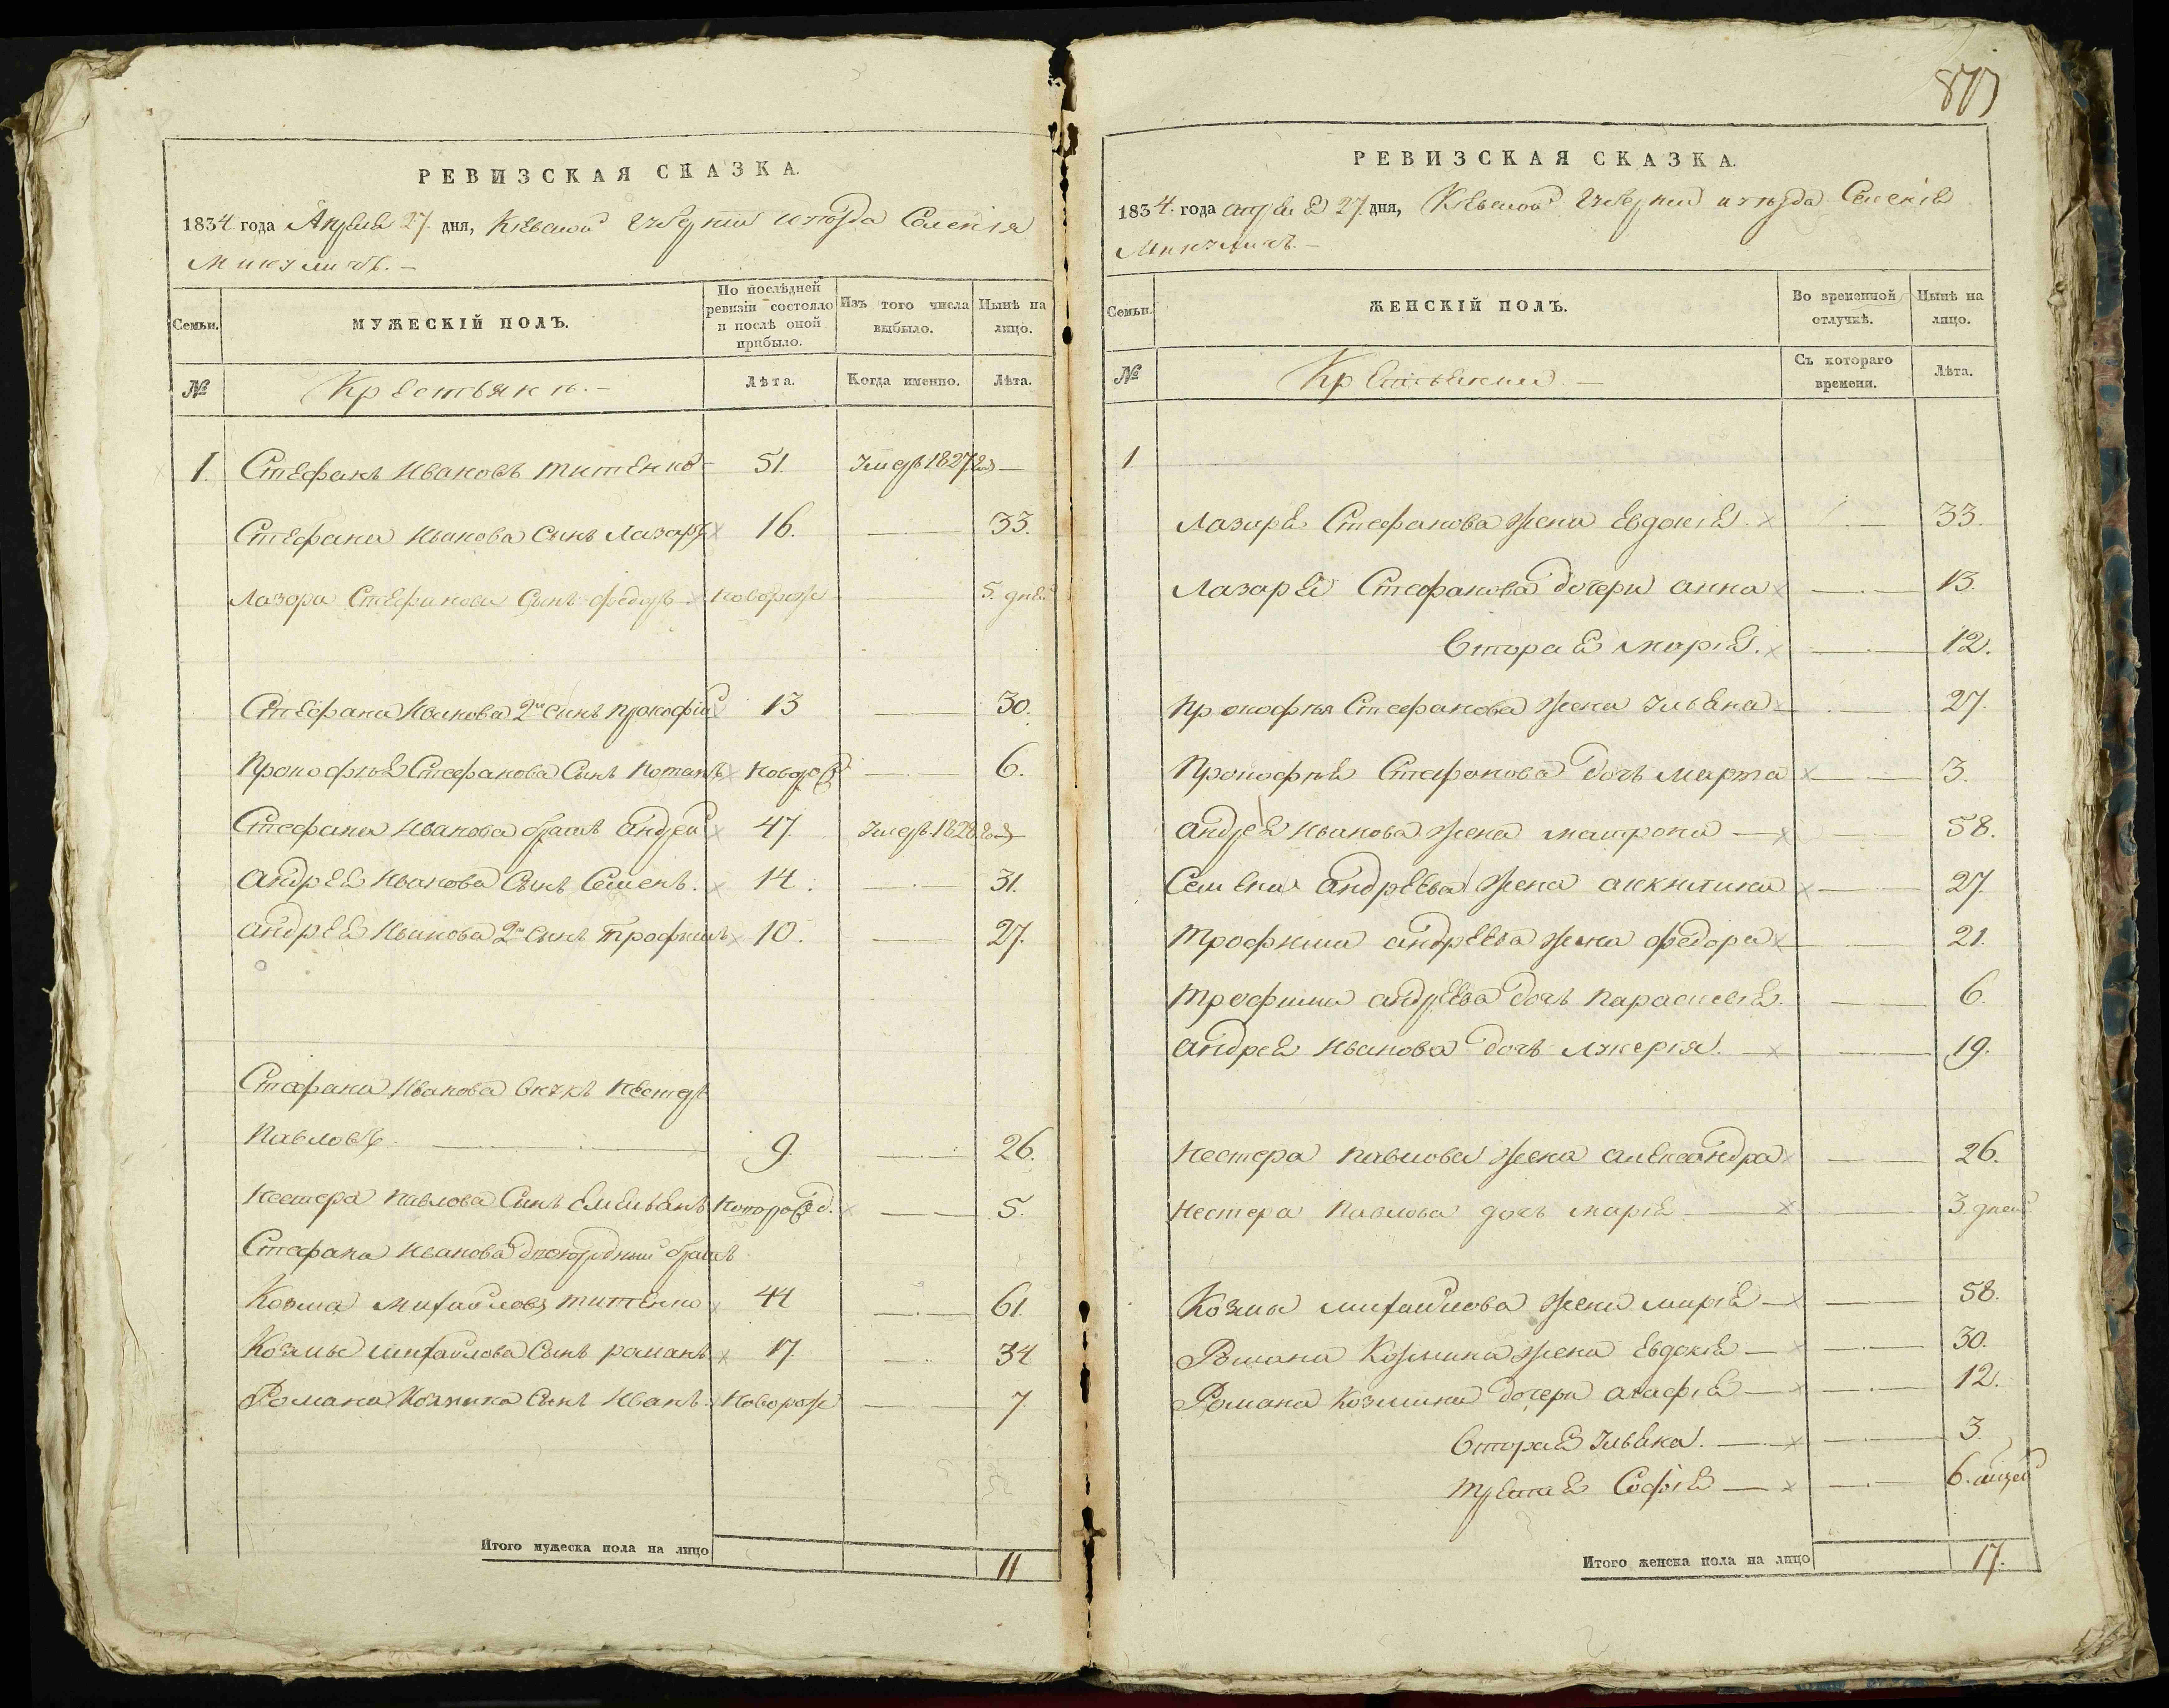 РЕВИЗСКАЯ СКАЗКА.
1834. года Апреля 27. дня, Кіевской Губерніи и уезда Селенія
Микуличъ. —
Семьи.
МУЖЕСКІЙ ПОЛЪ.
По послѣдней ревизіи состояло и послѣ оной прибыло.
Изъ того числа выбыло.
Нынѣ на лицо.
№
Крестьяни. —
Лѣта.
Когда именно.
Лѣта.
1. Стефанъ Ивановъ Титенко — 51. Умеръ 1827 год —
Стефана Иванова Сынъ Лазарь 16. — 33.
Лазора Стефанова Сынъ Федоръ новорож — 5. дней
Стефана Иванова 2й Сынъ Прокофій 13 — 30.
Прокофія Стефанова Сынъ Потапъ новорож — 6.
Стефана Иванова братъ Андрей 47. Умеръ 1828 год —
Андрея Иванова Сынъ Семенъ. 14. — 31.
Андрея Иванова 2й Сынъ Трофимъ 10. — 27.
Стефана Иванова внукъ Нестеръ
Павловъ. — 9. — 26.
Нестера Павлова Сынъ Емельянъ новорожд. — 5.
Стефана Иванова двоюродный братъ
Козма Михайловъ Титенко 44 — 61.
Козмы Михайлова Сынъ Романъ 17. — 34
Романа Козмина Сынъ Иванъ. Новорож — 7
Итого мужеска пола на лицо 11
877
РЕВИЗСКАЯ СКАЗКА.
1834. года Апреля 27. дня, Кіевской Губерніи и уезда Селенія
Микуличъ. —
Семьи.
ЖЕНСКІЙ ПОЛЪ.
Во временной отлучкѣ.
Нынѣ на лицо.
№
Крестьянки —
Съ котораго времени.
Лѣта.
1
Лазаря Стефанова жена Евдокія. — 33.
Лазаря Стефанова дочери Анна — 13.
Вторая Марія. — 12.
Прокофія Стефанова жена Ульяна — 27.
Прокофія Стефанова дочь Марта — 3.
Андрея Иванова жена Матрона — 58.
Семена Андреева жена Анна — 27.
Трофима Андреева жена Федора — 21.
Трофима Андреева дочь Параскевія. — 6.
Андрея Иванова дочь Лукерія. — 19.
Нестера Павлова жена Александра — 26.
Нестера Павлова дочь Марія — 3. дней
Козмы Михайлова жена Марія — 58.
Романа Козмина жена Евдокія — 30.
Романа Козмина дочери Агафія — 12.
Вторая Ульяна. — 3.
Третая Софія — 6. месяцей
Итого женска пола на лицо 17.